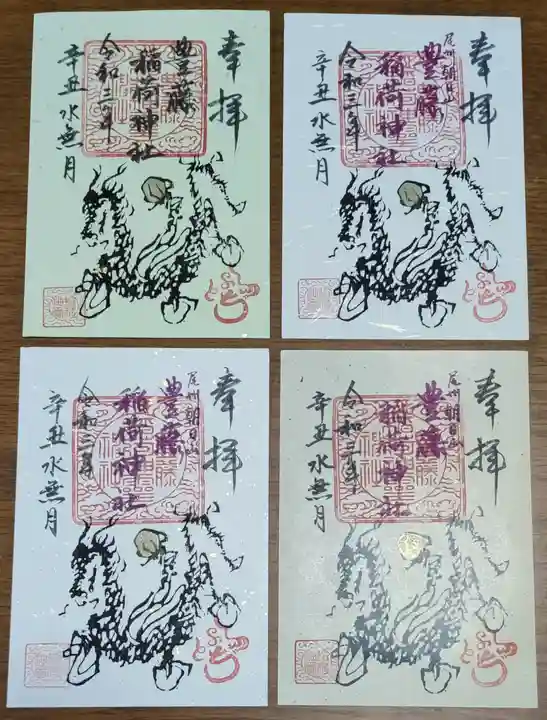 奉拝
豊藤
稲荷神社
令和三年
辛丑 水無月
奉拝
尾州 朝日山
豊藤
稲荷神社
令和三年
辛丑 水無月
奉拝
尾州 朝日山
豊藤
稲荷神社
令和三年
辛丑 水無月
奉拝
尾州 朝日山
豊藤
稲荷神社
令和三年
辛丑 水無月